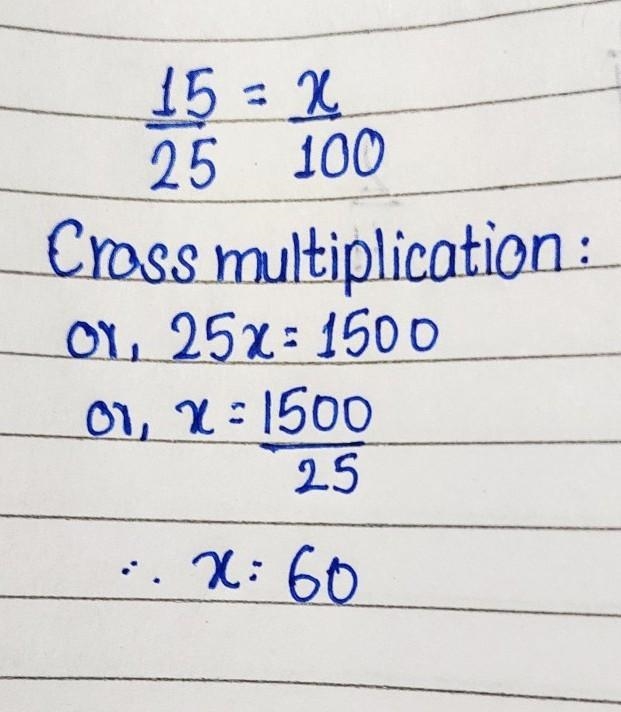 15/25 = x/100
Cross multiplication:
or, 25x = 1500
or, x = 1500/25
∴ x = 60